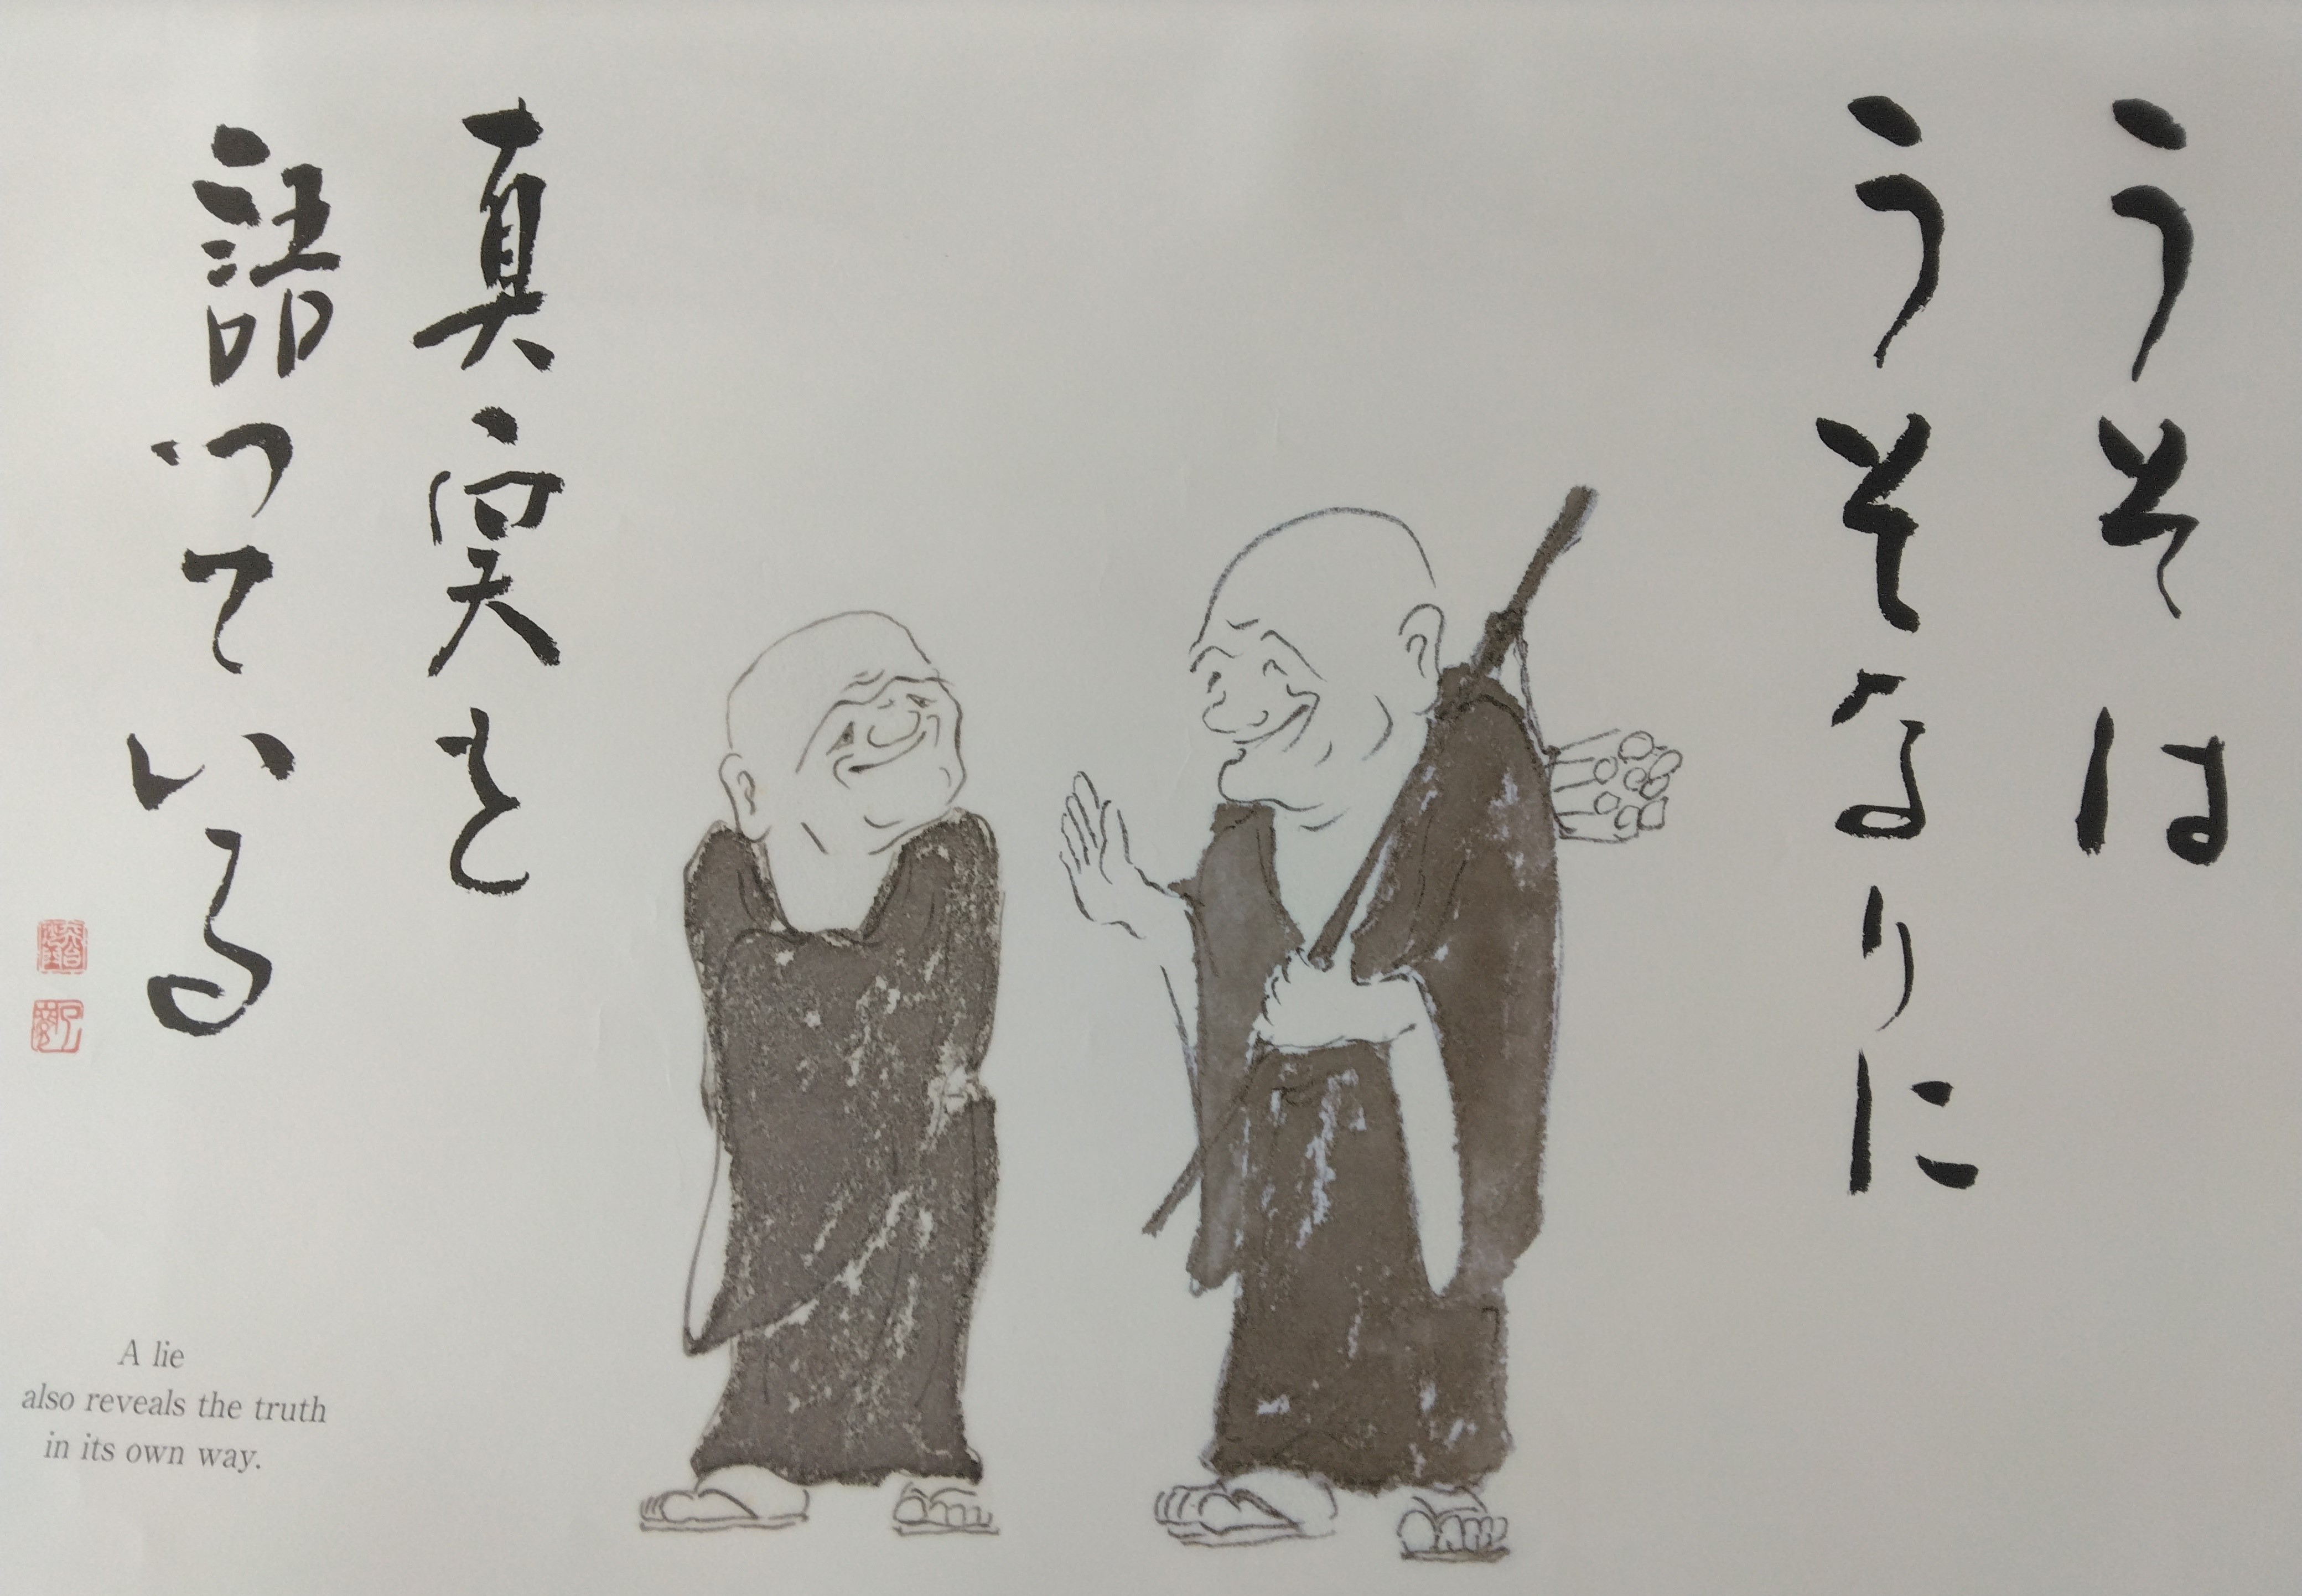 うそは
うそなりに
真実を
語っている
A lie
also reveals the truth
in its own way.